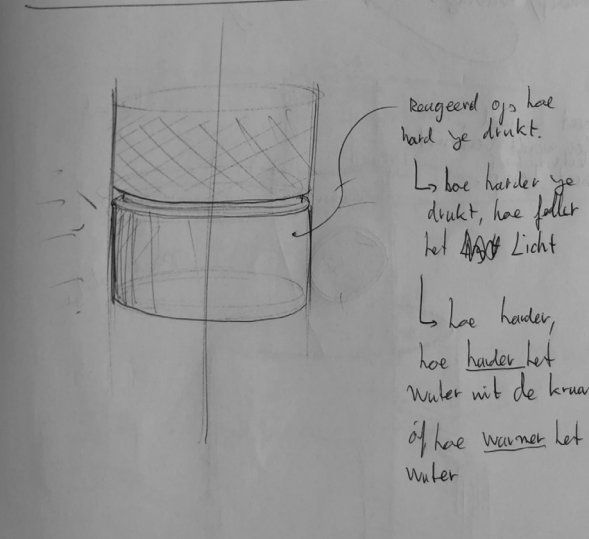 Reageerd op hoe
hard je drukt.
↳ hoe harder je
drukt, hoe feller
het Licht
↳ hoe harder,
hoe harder het
water uit de kraa
óf hoe warmer het
water